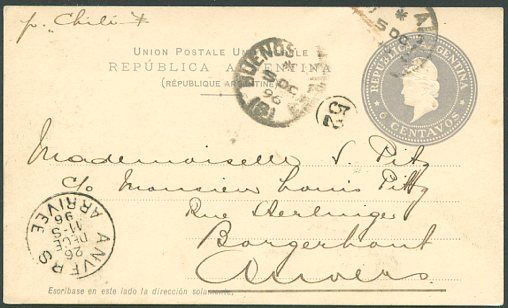 p. "Chili"
UNION POSTALE UNIVERSELLE
REPÚBLICA ARGENTINA
(RÉPUBLIQUE ARGENTINE)
BUENOS
5 DC
96
REPUBLICA ARGENTINA
6 CENTAVOS
52
Mademoiselle S. Pitz
c/o Monsieur Louis Pitz
Rue
Borgerhout
Anvers
ANVERS
ARRIVÉE
26
DECE
11-S
96
Escríbase en este lado la dirección solamente.